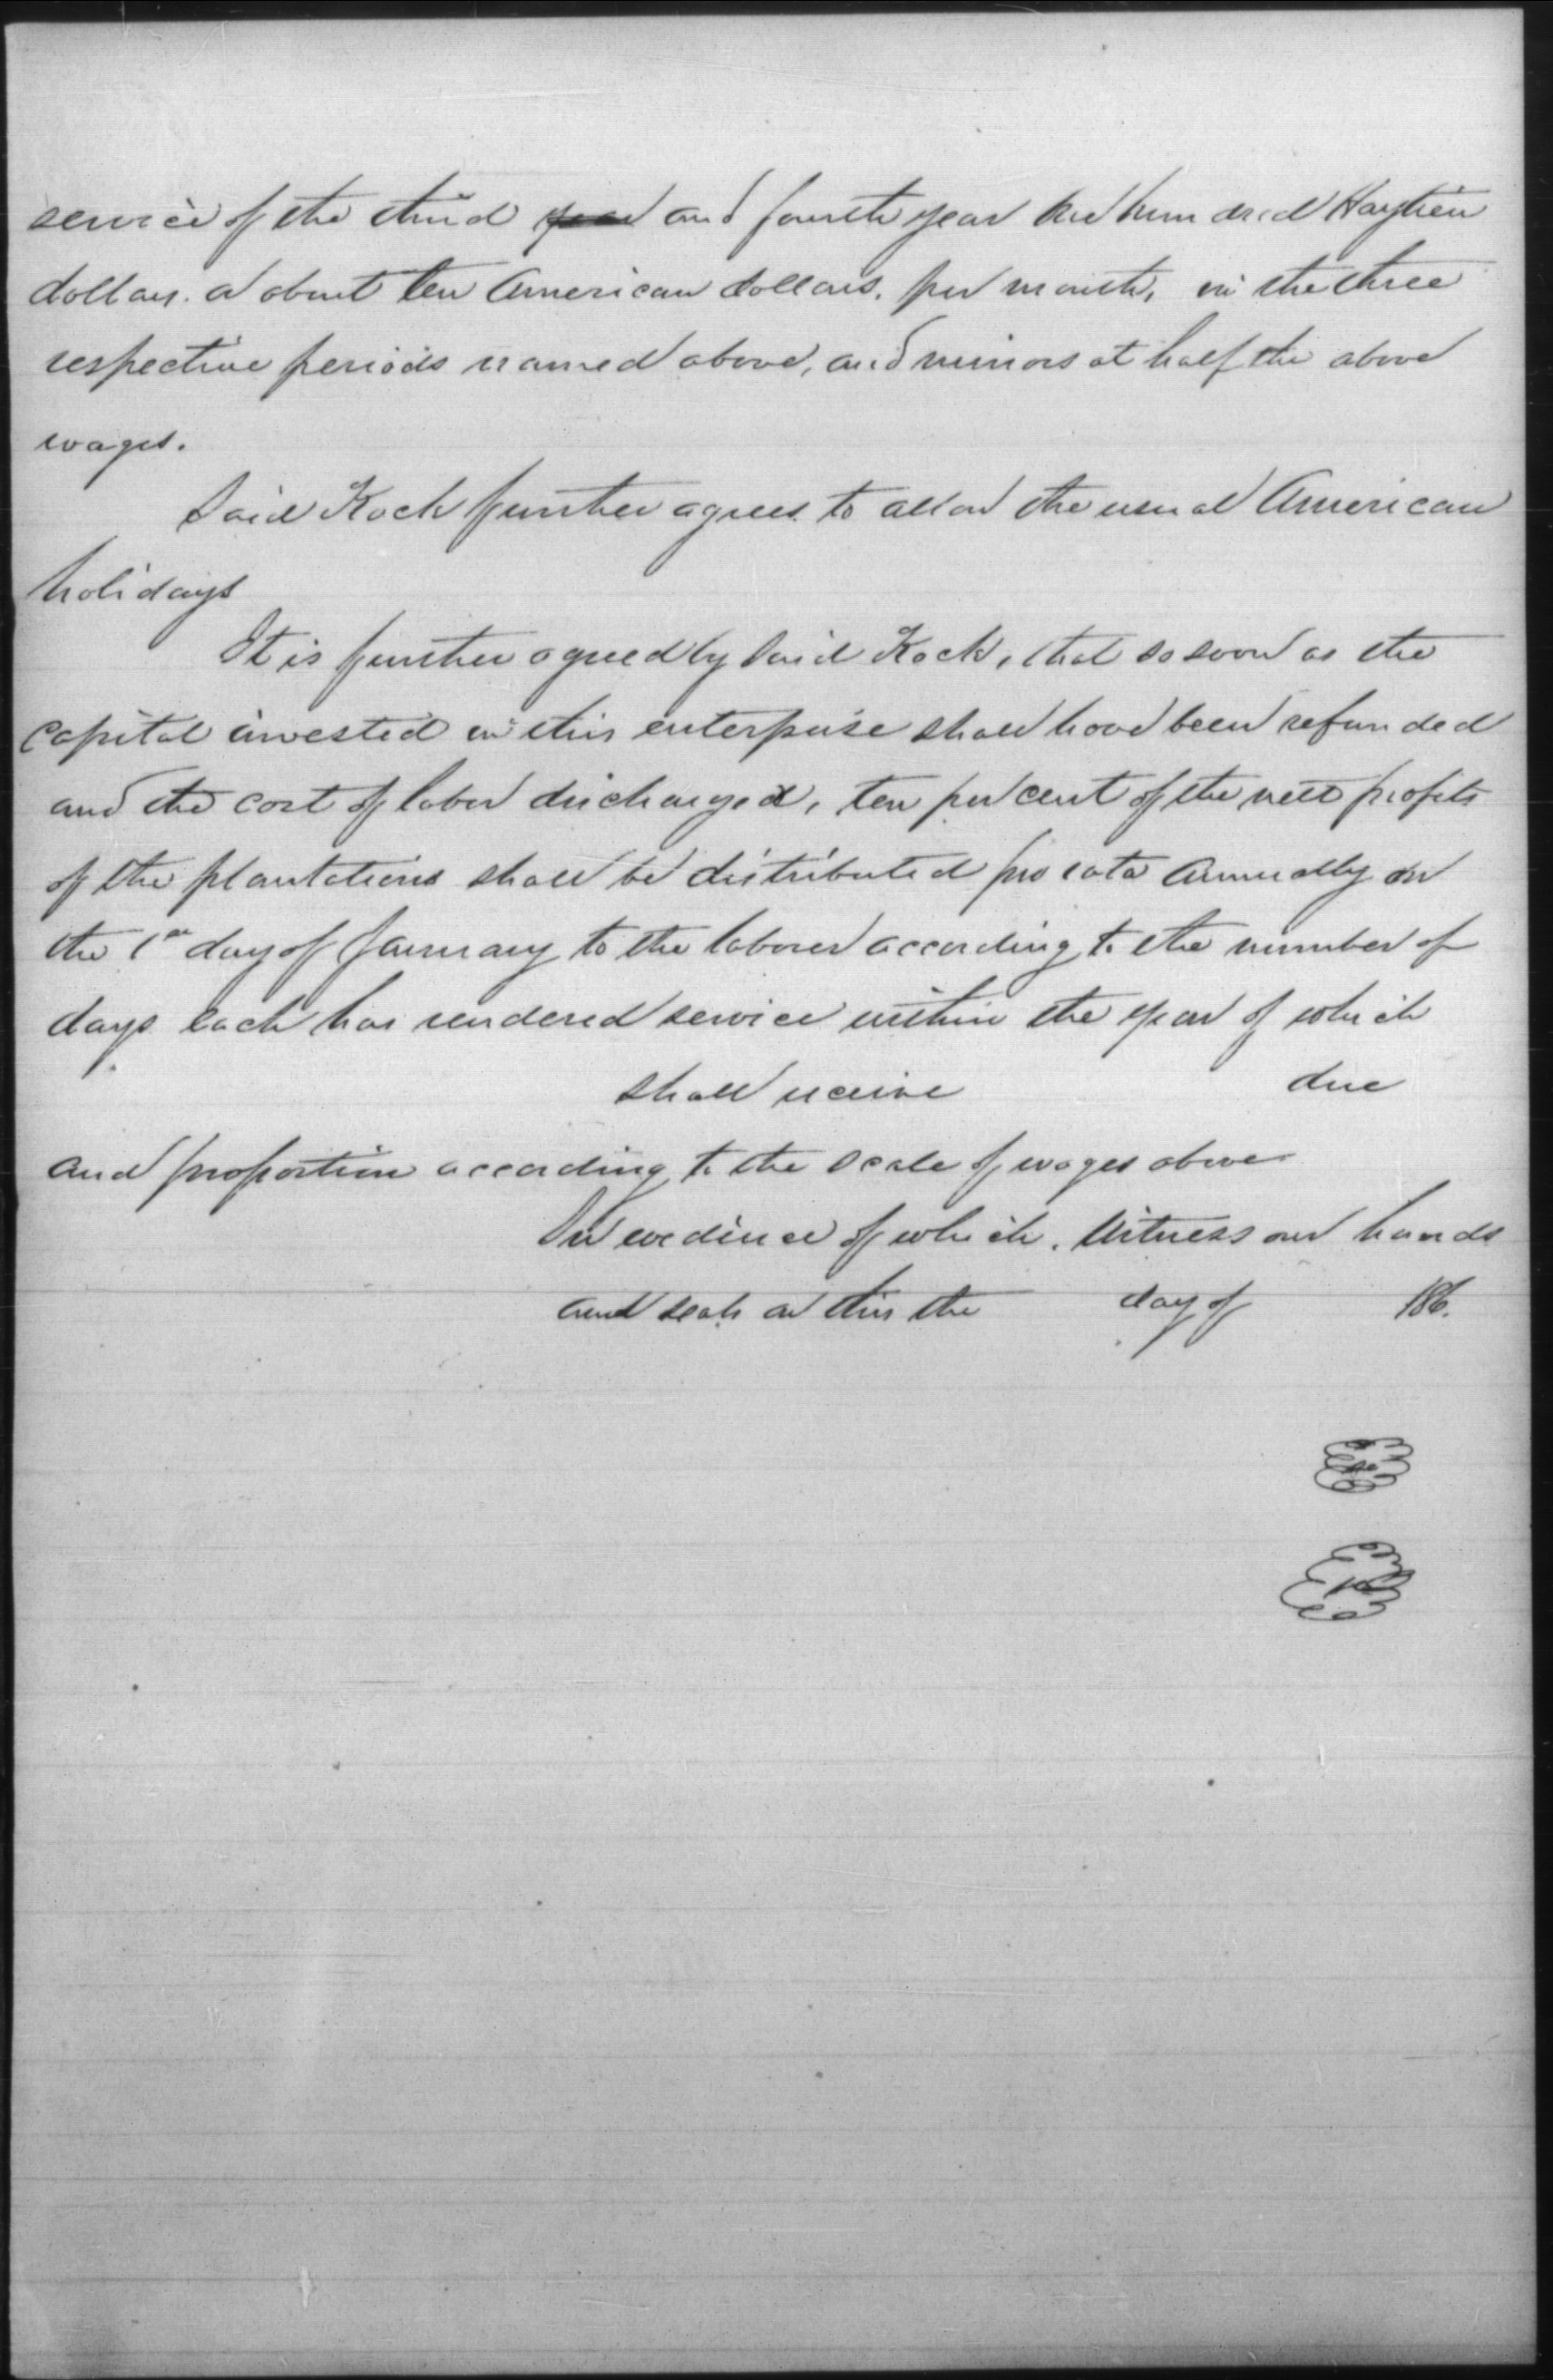 service of the third year and fourth year hundred Haytien
dollars. or about ten American dollars. per month, in the three
respective periods named above, and minors at half the above
wages.
Said Kock further agrees to allow the usual American
holidays
It is further agreed by Said Kock, that so soon as the
capital invested in this enterprise shall have been refunded
and the cost of labor discharged, ten per cent of the nett profits
of the plantations shall be distributed pro rata annually on
the 1st day of January to the laborer according to the number of
days each has rendered service within the year of which
shall receive due
and proportion according to the scale of wages above
In evidence of which. Witness our hands
and seals on this the day of 186.